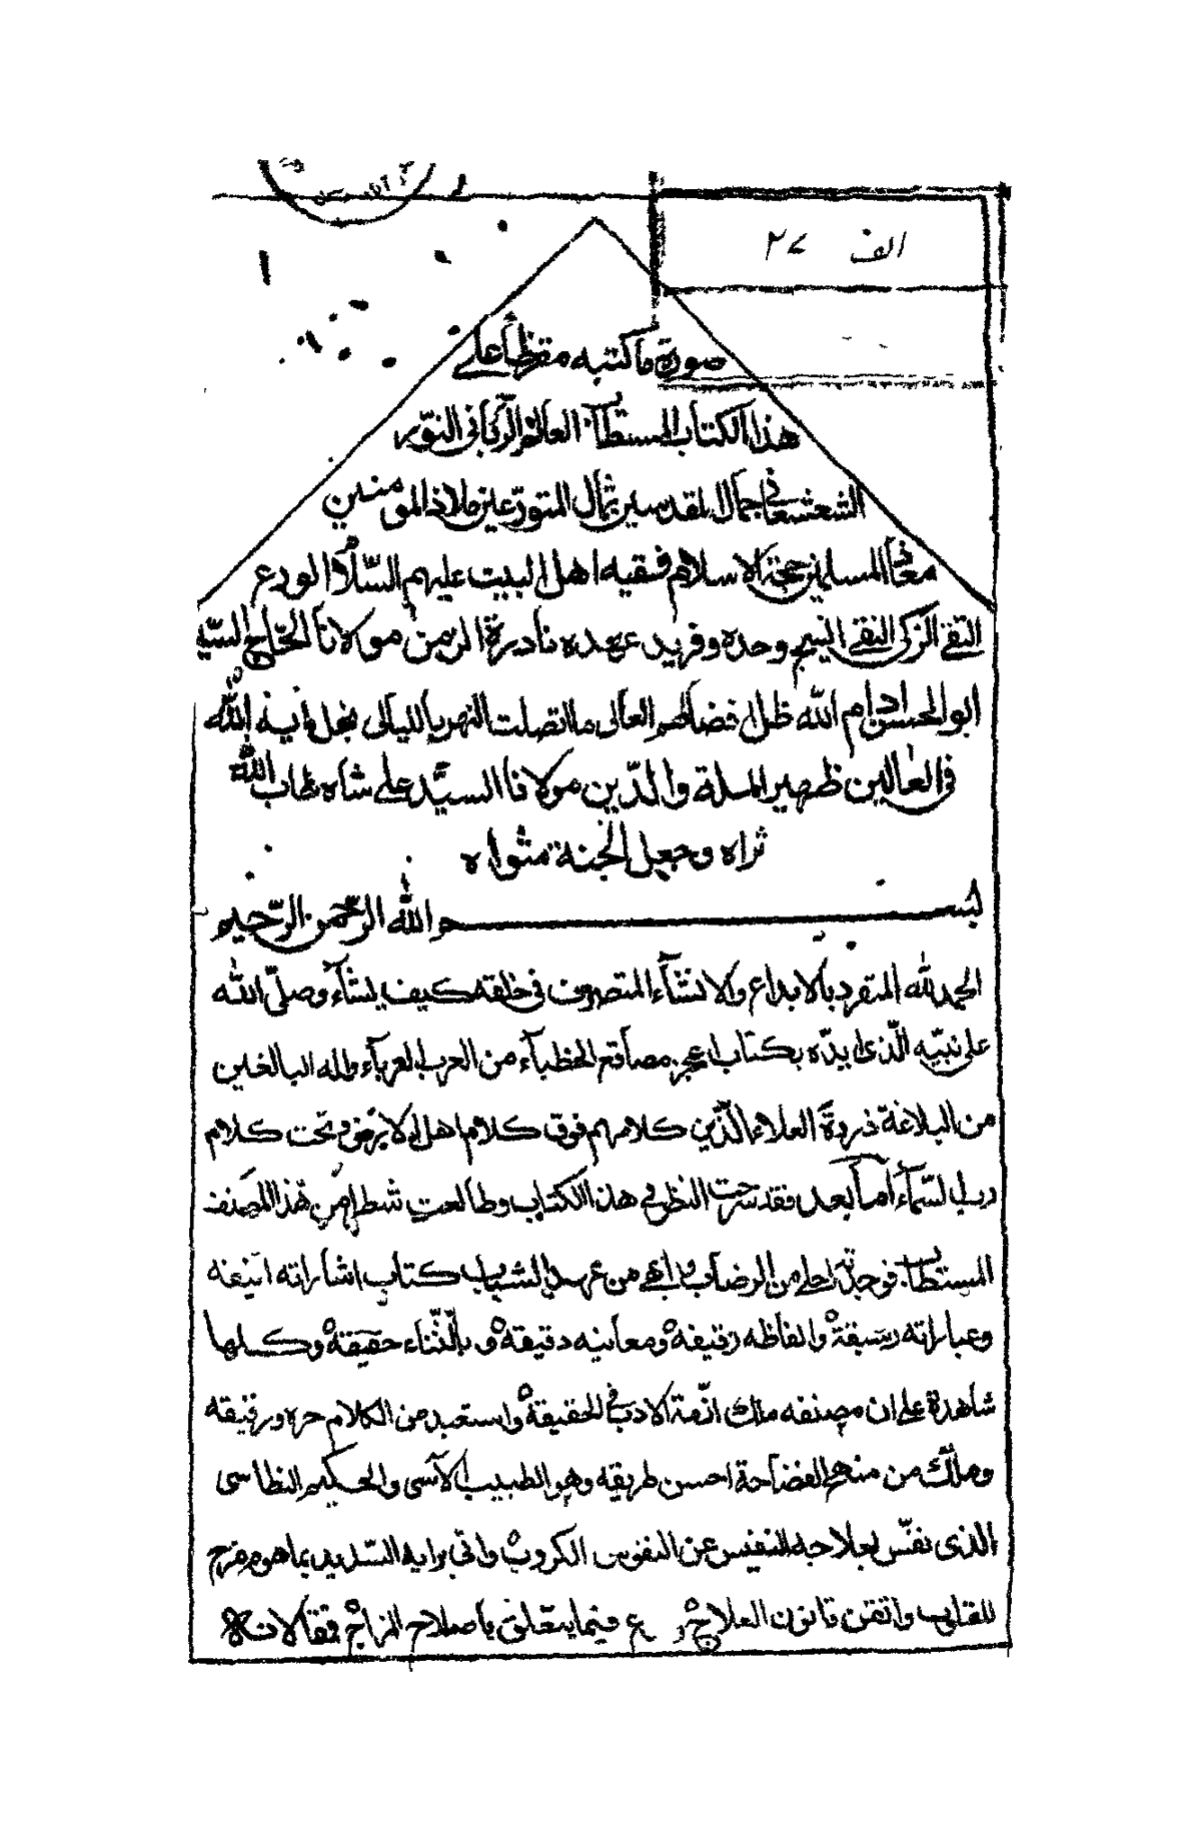 الف ٢٧
صورة ما كتبه مقرظا على
هذا الكتاب المستطاب العالم الربانى النورى
الشعشعانى جمال المقدسين ثمال المتورعين ملاذ المومنين
معاذ المسلمين حجة الاسلام فقيه اهل البيت عليهم السلام الورع
التقى الزكى النقى النسيج وحده وفريد عهده نادرة الزمن مولانا الحاج السيد
ابو الحسن ادام الله ظلال فضالهم العالى ما اتصلت النهر بالليالى نجل اية الله
فى العالمين ظهير الملة والدين مولانا السيد على شاه طاب الله
ثراه وجعل الجنة مثواه
بسم الله الرحمن الرحيم
الحمد لله المتفرد بالابداع والانشآء المتصرف فى خلقه كيف يشآء وصلى الله
على نبيه الذى ايده بكتاب اعجز مصاقع الخطبآء من العرب العربآء واله البالغين
من البلاغة ذروة العلاء الذين كلامهم فوق كلام اهل الارض وتحت كلام
رب السمآء اما بعد فقد سرحت النظر فى هذا الكتاب وطالعت شطرا من هذا المصنف
المستطاب فوجدته احلى من الرضاب وابهى من عهد الشباب كتاب اشاراته انيقه
وعباراته رشيقة والفاظه رقيقة ومعانيه دقيقة و بالثناء حقيقة وكلها
شاهدة على ان مصنفه ملك ازمة الادب فى الحقيقة واستعبد من الكلام حره ورقيقه
وملك من منهج الفصاحة احسن طريقه وهو الطبيب الآسى والحكيم النطاسى
الذى نفس بعلاجه النفيس عن النفوس الكروب واتى برايه السديد بما هو مفرح
للقلوب واتقن قانون العلاج فيما يتعلق باصلاح المزاج فقالانه